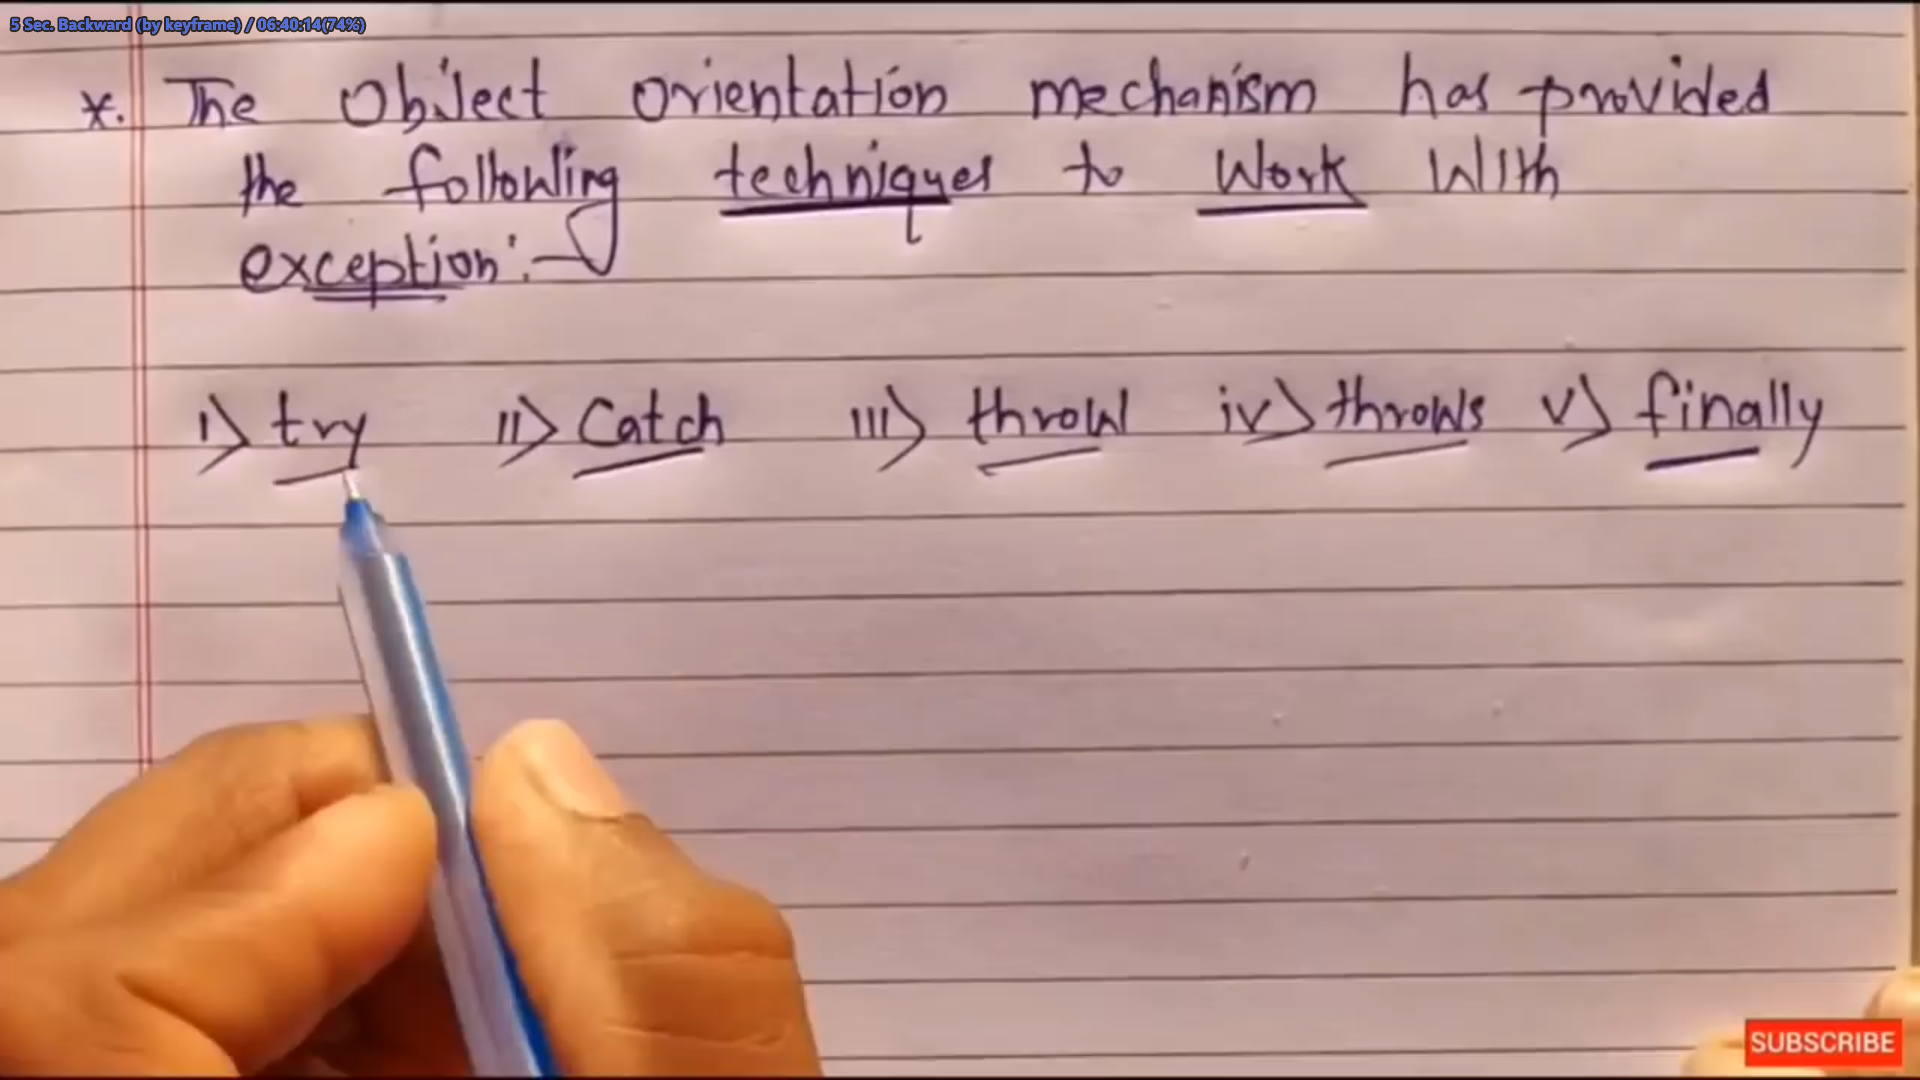 5 Sec. Backward (by keyframe) / 06:40:14(74%)
*. The Object orientation mechanism has provided
the following techniques to Work With
exception:-
i) try ii) Catch iii) throw iv) throws v) finally
SUBSCRIBE